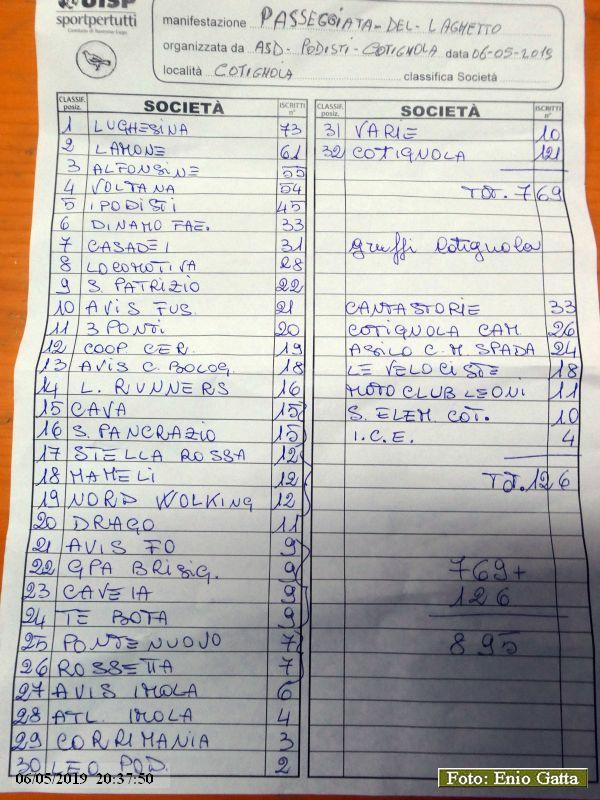 UISP
sportpertutti
manifestazione PASSEGGIATA-DEL-LAGHETTO
organizzata da ASD-PODISTI-COTIGNOLA data 06-05-2019
località COTIGNOLA classifica Società
CLASSIF. posiz. SOCIETÀ ISCRITTI n°
1 LUGHESINA 73
2 LAMONE 61
3 ALFONSINE 55
4 VOLTANA 54
5 IPODISTI 45
6 DINAMO FAE. 33
7 CASADEI 31
8 LOCOMOTIVA 28
9 S. PATRIZIO 22
10 AVIS FUS. 21
11 3 PONTI 20
12 COOP CER. 19
13 AVIS C. BOLOG. 18
14 L. RUNNERS 16
15 CAVA 15
16 S. PANCRAZIO 15
17 STELLA ROSSA 12
18 MAMELI 12
19 NORD WOLKING 12
20 DRAGO 11
21 AVIS FO 9
22 GPA BRISIG. 9
23 CAVEIA 9
24 TE BOTA 9
25 PONTENUOVO 7
26 ROSSETTA 7
27 AVIS IMOLA 6
28 ATL. IMOLA 4
29 CORRIMANIA 3
30 LEO POD. 2
CLASSIF. posiz. SOCIETÀ ISCRITTI n°
31 VARIE 10
32 COTIGNOLA 121
TOT. 769
gruppi Cotignola
CANTASTORIE 33
COTIGNOLA CAM. 26
ASILO C.M. SPADA 24
LE VELOCISTE 18
MOTO CLUB LEONI 11
S. ELEM. COT. 10
I.C.E. 4
TOT. 126
769+
126
895
06/05/2019 20:37:50
Foto: Enio Gatta